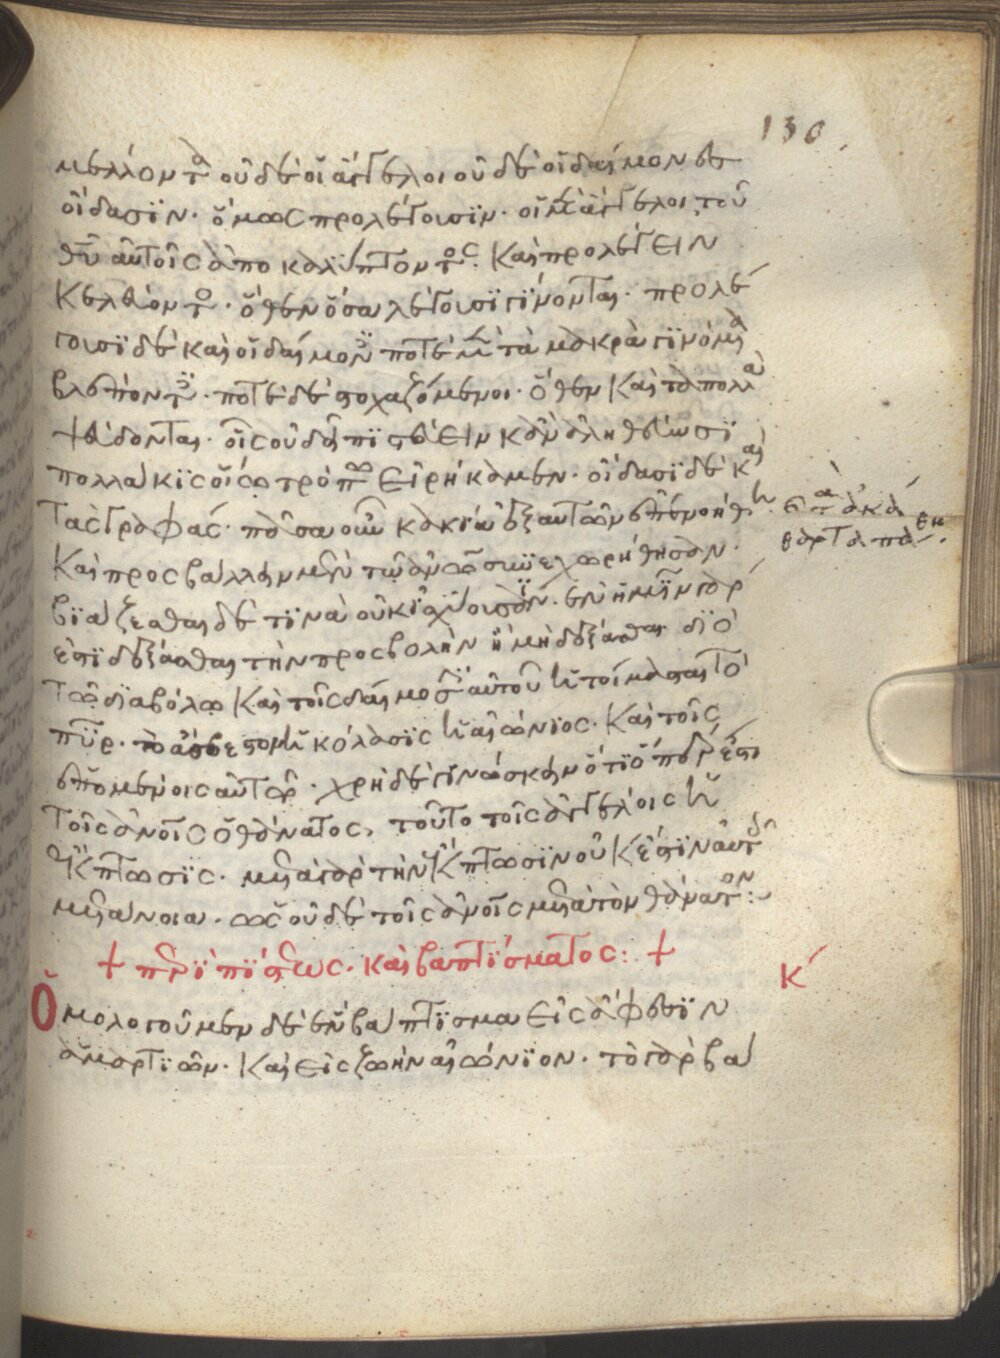 130
μέλλοντα οὐδὲ οἱ ἄγγελοι οὐδὲ οἱ δαίμονες
οἴδασϊν· ὅμως προλέγουσϊν· οἱ μὲν ἄγγελοι τοῦ
θῦ αὐτοῖς ἀποκαλύπτοντος· καὶ προλέγειν
κελεύοντος· ὅθεν ὅσα λέγουσϊ γΐνονται· προλέ
γουσϊ δὲ καὶ οἱ δαίμονες ποτὲ μὲν τὰ μακρὰ γϊνόμενα
βλέποντες· ποτὲ δὲ στοχαζόμενοι· ὅθεν καὶ τὰ πολλὰ
ψεύδονται· οἷς οὐ δεῖ πϊστεύειν κἂν ἀληθεύωσϊ
πολλάκϊς οἵω τρόπω εἰρήκαμεν· οἴδασϊ δὲ καὶ
τὰς γραφάς· πᾶσα οὖν κακία ἐξ αὐτῶν ἐπενοήθη·
καὶ τὰ ἀκά
θαρτα πάθη·
καὶ προσβάλλειν μὲν τῷ ἀνῶ συνεχωρήθησαν·
βϊάζεσθαι δὲ τϊνὰ οὐκ ἰσχύουσϊν· ἐν ἡμῖν γάρ
ἐστϊ δέξασθαι τὴν προσβολὴν ἢ μὴ δέξασθαι· δϊὸ
τῶ δϊαβόλω καὶ τοῖς δαίμοσϊν αὐτοῦ ἡτοίμασται τὸ
πῦρ· τὸ ἄσβεστον ἡ κόλασϊς ἡ αἰώνϊος· καὶ τοῖς
ἑπομένοις αὐτῶ· χρὴ δὲ γϊνώσκειν ὅτϊ ὅπερ ἐστι
τοῖς ἀνοῖς ὁ θάνατος, τοῦτο τοῖς ἀγγέλοις ἡ
ἔκπτωσϊς· μετὰ γὰρ τὴν ἔκπτωσϊν οὐκ ἔστϊν αὐτοῖς
μετάνοια· ὡς οὐδὲ τοῖς ἀνοῖς μετὰ τὸν θάνατον:
+ περὶ πίστεως· καὶ βαπτΐσματος: +
κ΄
Ὁμολογοῦμεν δὲ ἓν βάπτϊσμα εἰς ἄφεσϊν
ἁμαρτϊῶν· καὶ εἰς ζωὴν αἰώνϊον· τὸ γὰρ βά